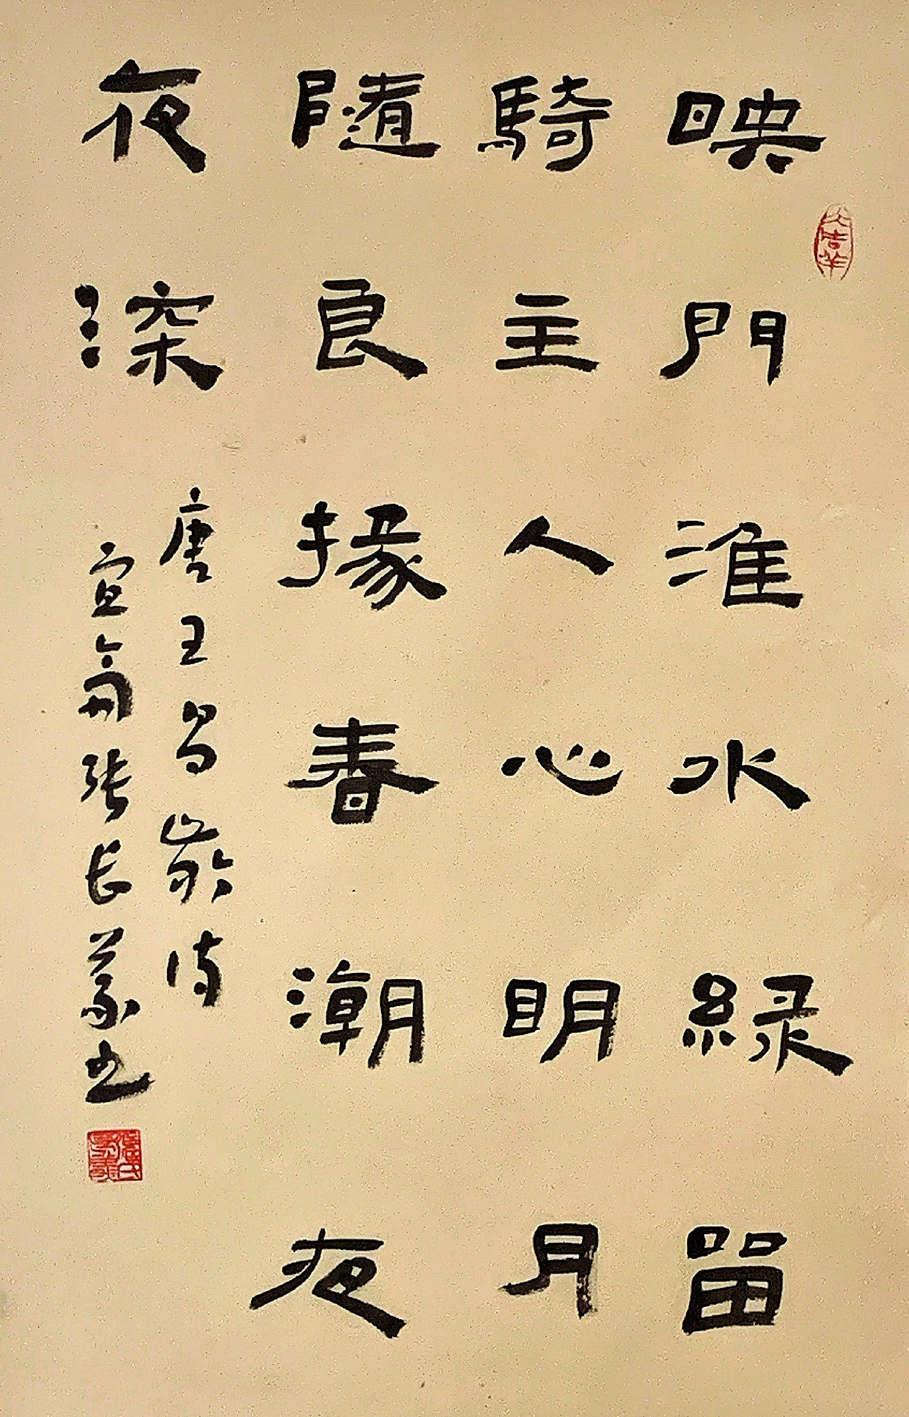 映門淮水綠留
騎主人心明月
隨良掾春潮夜
夜深
唐王昌齡詩
張長義书
大吉羊